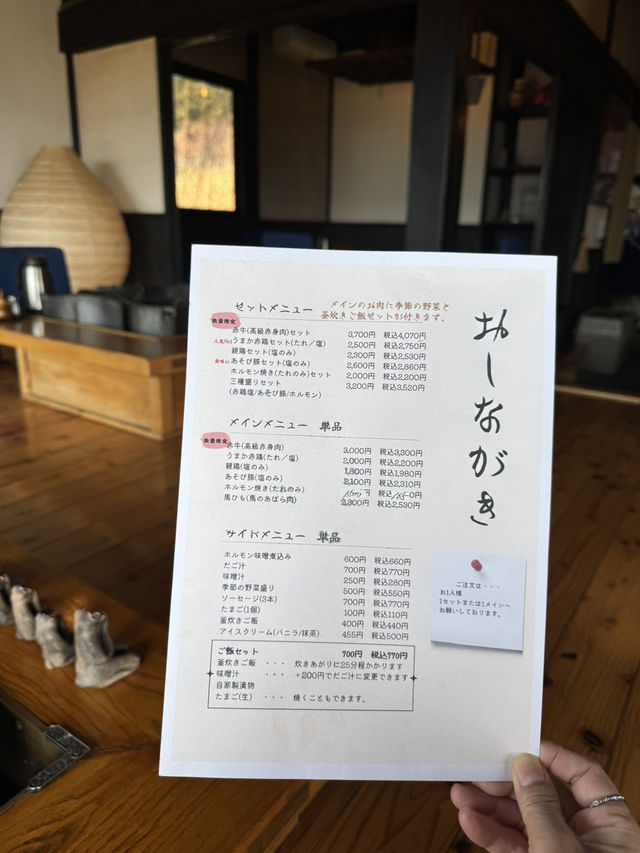 おしながき
セットメニュー メインのお肉に季節の野菜と
釜炊きご飯セットが付きます。
数量限定
赤牛(高級赤身肉)セット 3,700円 税込4,070円
人気No1 うまか赤鶏セット(たれ/塩) 2,500円 税込2,750円
親鶏セット(塩のみ) 2,300円 税込2,530円
あそび豚セット(塩のみ) 2,600円 税込2,860円
ホルモン焼き(たれのみ)セット 2,000円 税込2,200円
三種盛りセット 3,200円 税込3,520円
(赤鶏塩/あそび豚/ホルモン)
メインメニュー 単品
数量限定
赤牛(高級赤身肉) 3,000円 税込3,300円
うまか赤鶏(たれ/塩) 2,000円 税込2,200円
親鶏(塩のみ) 1,800円 税込1,980円
あそび豚(塩のみ) 2,100円 税込2,310円
ホルモン焼き(たれのみ) 1,500円 税込1,650円
馬ひも(馬のあばら肉) 2,300円 税込2,530円
サイドメニュー 単品
ホルモン味噌煮込み 600円 税込660円
だご汁 700円 税込770円
味噌汁 250円 税込280円
季節の野菜盛り 500円 税込550円
ソーセージ(3本) 700円 税込770円
たまご(1個) 100円 税込110円
釜炊きご飯 400円 税込440円
アイスクリーム(バニラ/抹茶) 455円 税込500円
ご飯セット 700円 税込770円
釜炊きご飯 ・・・ 炊きあがりに25分程かかります
味噌汁 ・・・ +200円でだご汁に変更できます
自家製漬物
たまご(生) ・・・ 焼くこともできます。
ご注文は・・・
お1人様
1セットまたは1メイン〜
お願いしております。